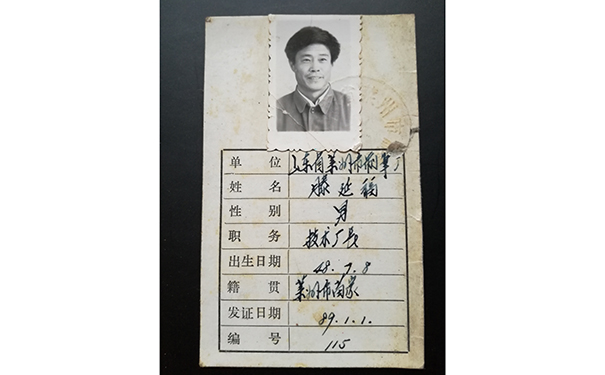 单位 山东省莱州市制笔厂
姓名 滕延福
性别 男
职务 技术厂长
出生日期 48.7.8
籍贯 莱州市
发证日期 89.1.1.
编号 115